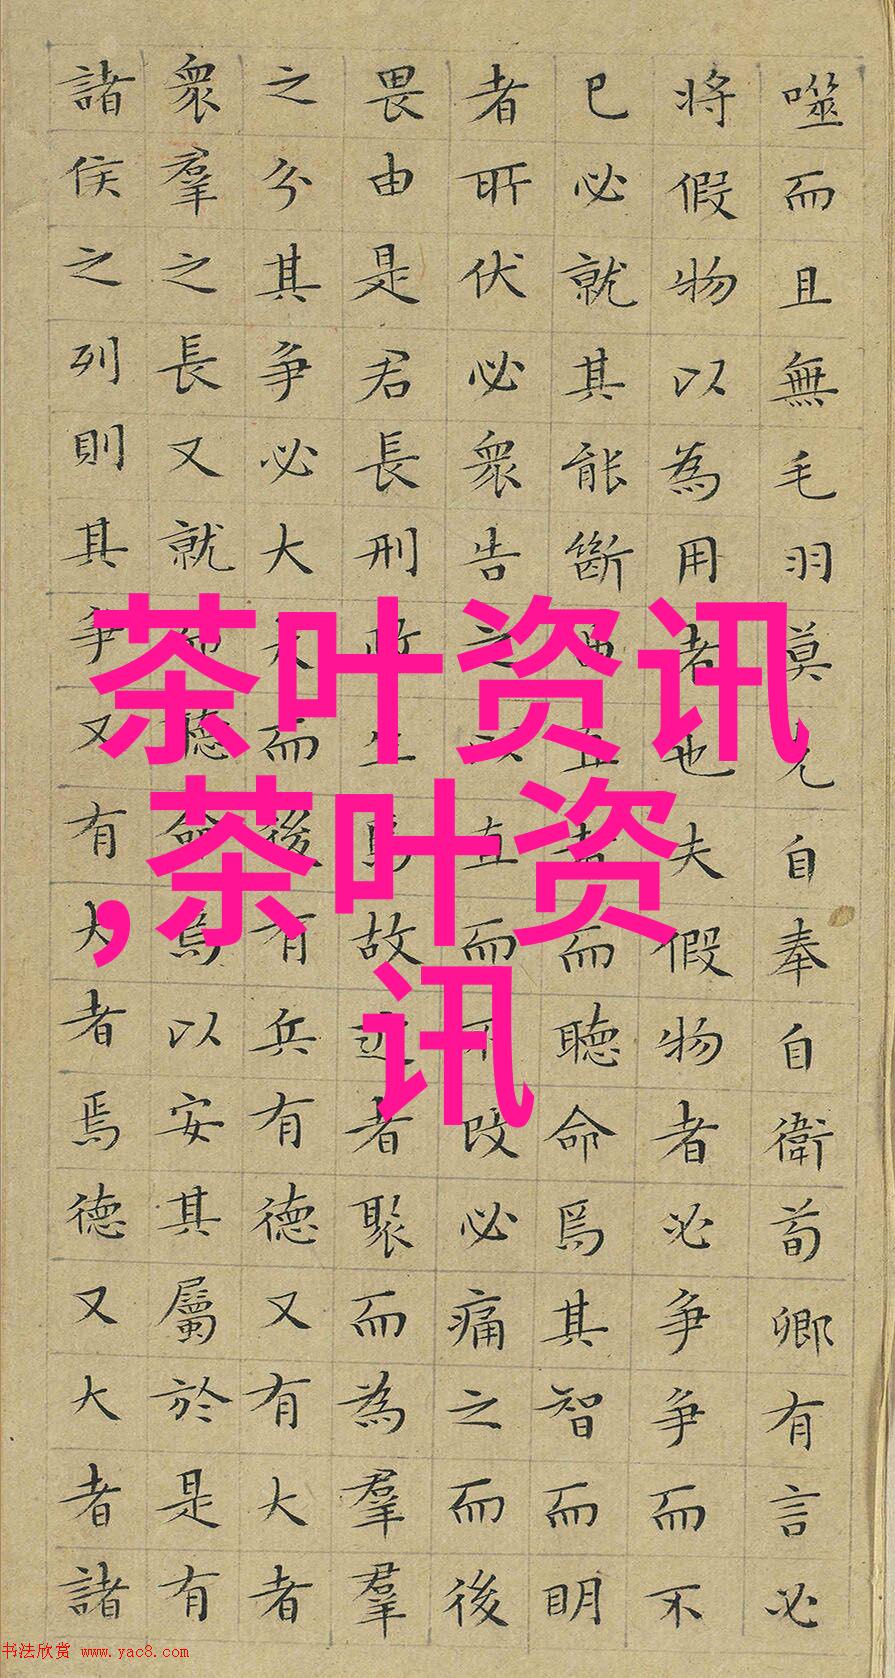 噬而且無毛羽莫克自奉自衛荀卿有言必
将假物以為用者也夫假物者必争争而不
已必就其能斷曲直者而聴命焉其智而明
者所伏必衆告之以直而不改必痛之而後
畏由是君長刑政生焉故近者聚而為羣羣
之分其争必大大而後有兵有德又有大者
衆羣之長又就而聴命焉以安其屬於是有
諸侯之列則其争又有大者焉德又大者諸
茶叶资讯
,茶叶资
讯
书法欣赏 www.yac8.com